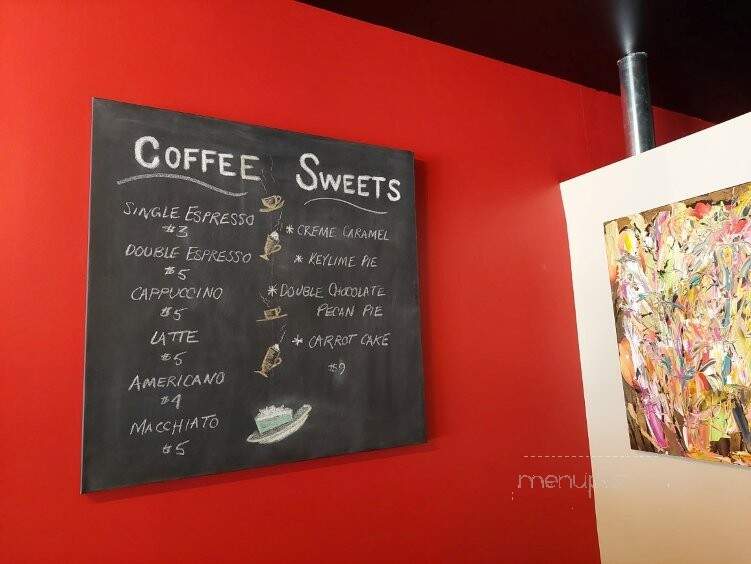 COFFEE
SINGLE ESPRESSO
$3
DOUBLE ESPRESSO
$5
CAPPUCCINO
$5
LATTE
$5
AMERICANO
$4
MACCHIATO
$5
SWEETS
* CREME CARAMEL
* KEYLIME PIE
* DOUBLE CHOCOLATE
PECAN PIE
* CARROT CAKE
$9